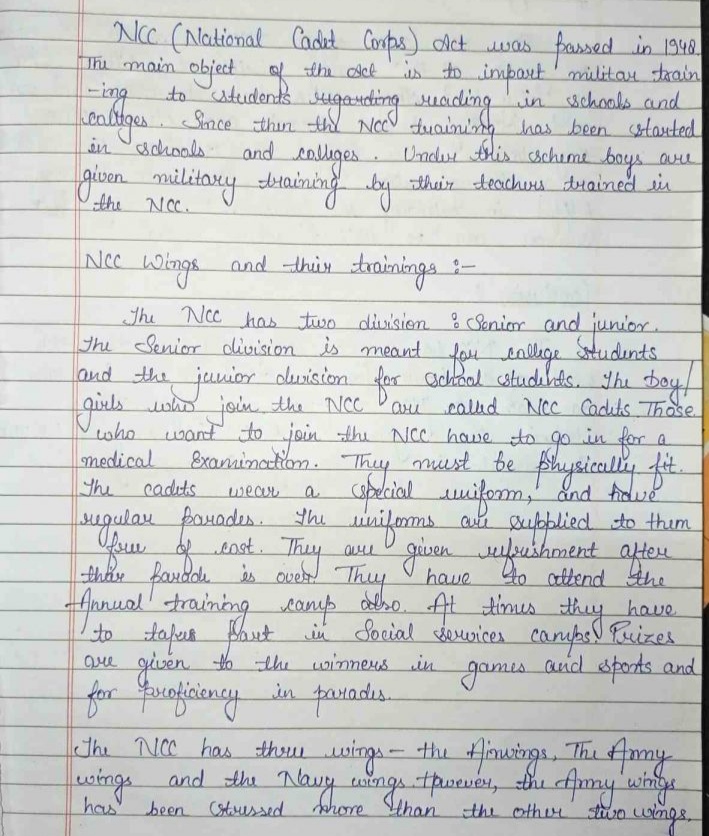 NCC (National Cadet Corps) Act was passed in 1948.
The main object of the Act is to impart militar train
-ing to students regarding reading in schools and
colleges. Since then the NCC training has been started
in schools and colleges. Under this scheme boys are
given military training by their teachers trained in
the NCC.
NCC Wings and their trainings :-
The NCC has two division : Senior and junior.
The Senior division is meant for college students
and the junior division for school students. The boy/
girls who join the NCC are called NCC Cadets. Those
who want to join the NCC have to go in for a
medical Examination. They must be physically fit.
The cadets wear a special uniform, and have
regular parades. The uniforms are supplied to them
free of cost. They are given refreshment after
their parade is over. They have to attend the
Annual training camp also. At times they have
to part in Social services camps. Prizes
are given to the winners in games and sports and
for proficiency in parades.
The NCC has three wings - the Airwings, The Army
wings and the Navy wings. However, the Army wings
has been stressed more than the other two wings.